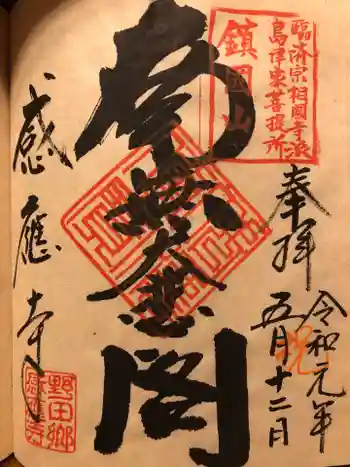 臨済宗相國寺派
島津家菩提所
鎮國山
奉拝
令和元年
祝
五月十二日
南無大悲閣
感應寺
野田郷
感應寺